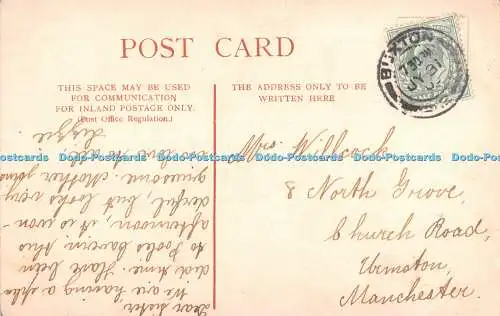 POST CARD
THIS SPACE MAY BE USED
FOR COMMUNICATION
FOR INLAND POSTAGE ONLY.
(Post Office Regulation.)
THE ADDRESS ONLY TO BE
WRITTEN HERE
BUXTON
7.30 PM
Dear Sister
We are having a
did time. Have been
to Pooles Cavern this
afternoon, it is won-
derful, but looks very
gruesome. Mother joins
in love to all.
Lizzie
Mrs. Willcock
8 North Grove,
Church Road,
Urmston,
Manchester.
Postcards Dodo-Postcards Dodo-Postcards Dodo-Postcards Dodo-Postcards Dodo-Postcards Dodo-Postcards Dodo-Postcards